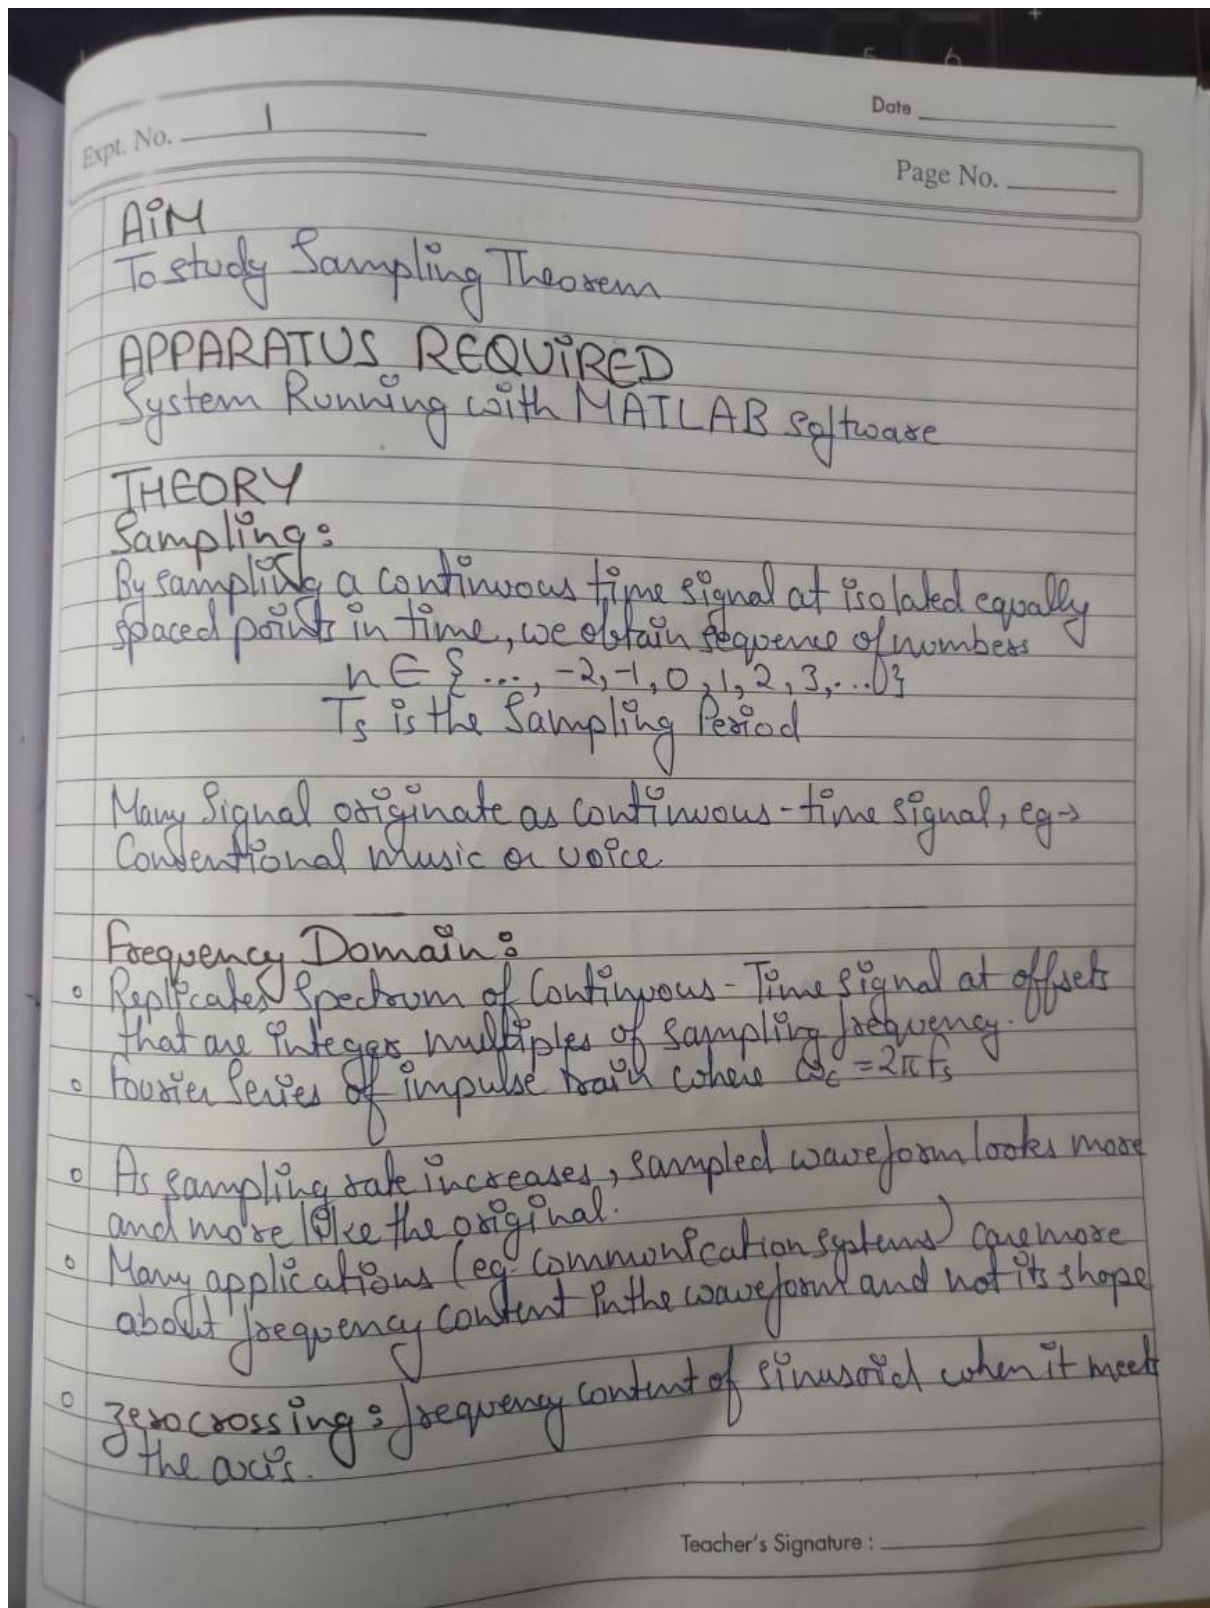 5 6
Date
Expt. No. 1
Page No.
AIM
To study Sampling Theorem
APPARATUS REQUIRED
System Running with MATLAB software
THEORY
Sampling:
By sampling a continuous time signal at isolated equally
spaced points in time, we obtain sequence of numbers
n ∈ {..., -2, -1, 0, 1, 2, 3, ...}
Ts is the Sampling Period
Many Signal originate as continuous-time signal, eg→
Conventional music or voice
Frequency Domain:
◦ Replicates Spectrum of Continuous-Time signal at offsets
that are integer multiples of sampling frequency.
◦ Fourier Series of impulse train where ωc = 2π fs
◦ As sampling rate increases, sampled waveform looks more
and more like the original.
◦ Many applications (eg. communication systems) care more
about frequency content in the waveform and not its shape
◦ zero crossing: frequency content of sinusoid when it meets
the axis.
Teacher's Signature :